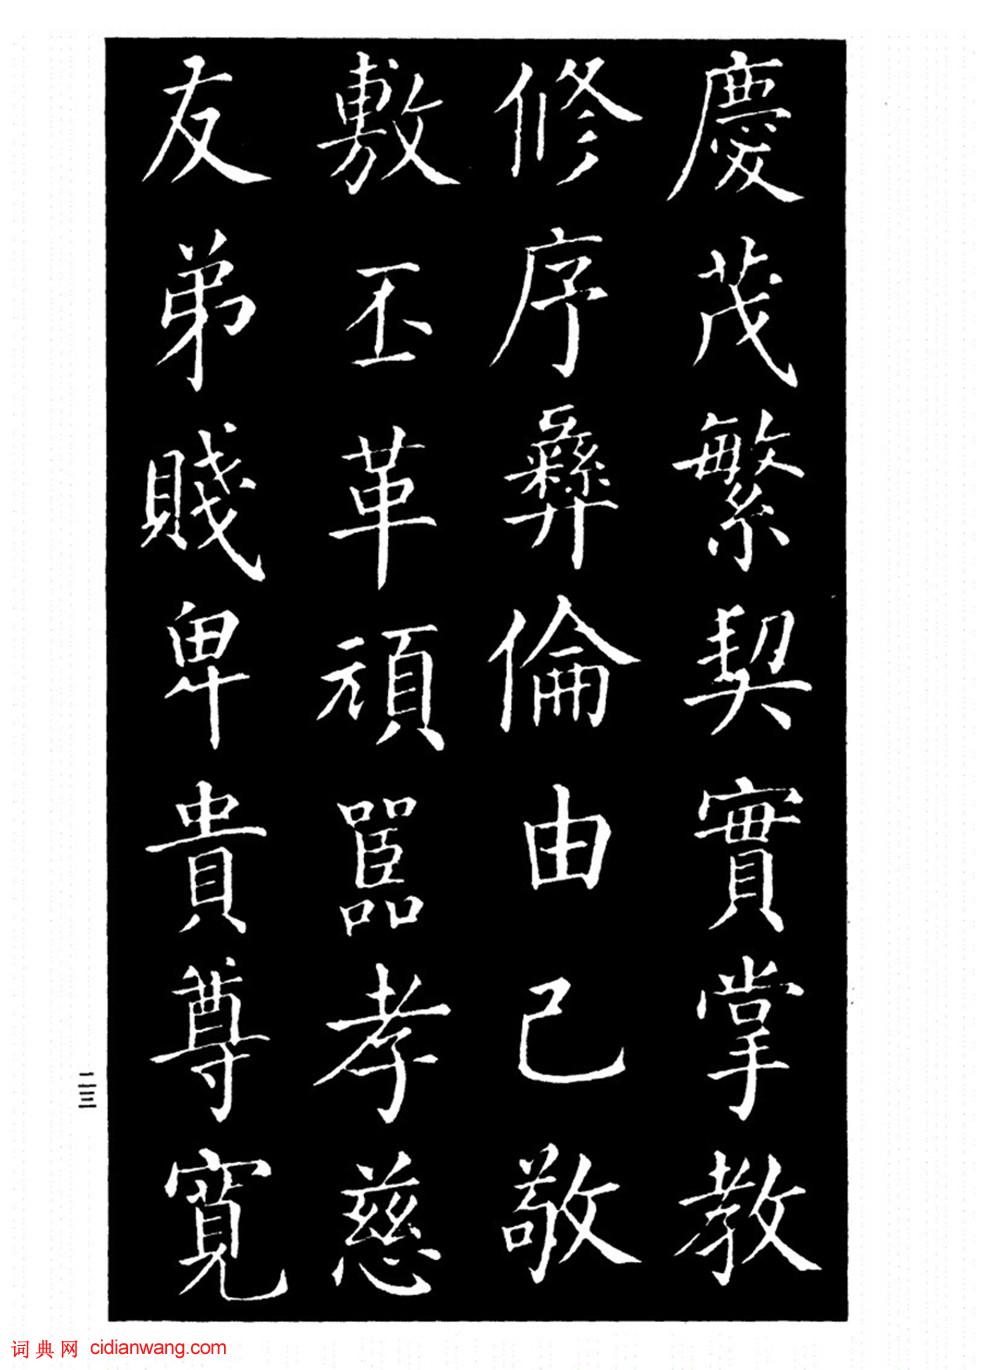 慶茂繁契實掌教
修序彝倫由己敬
敷丕革頑嚚孝慈
友弟賤卑貴尊寬
二三
词典网 cidianwang.com